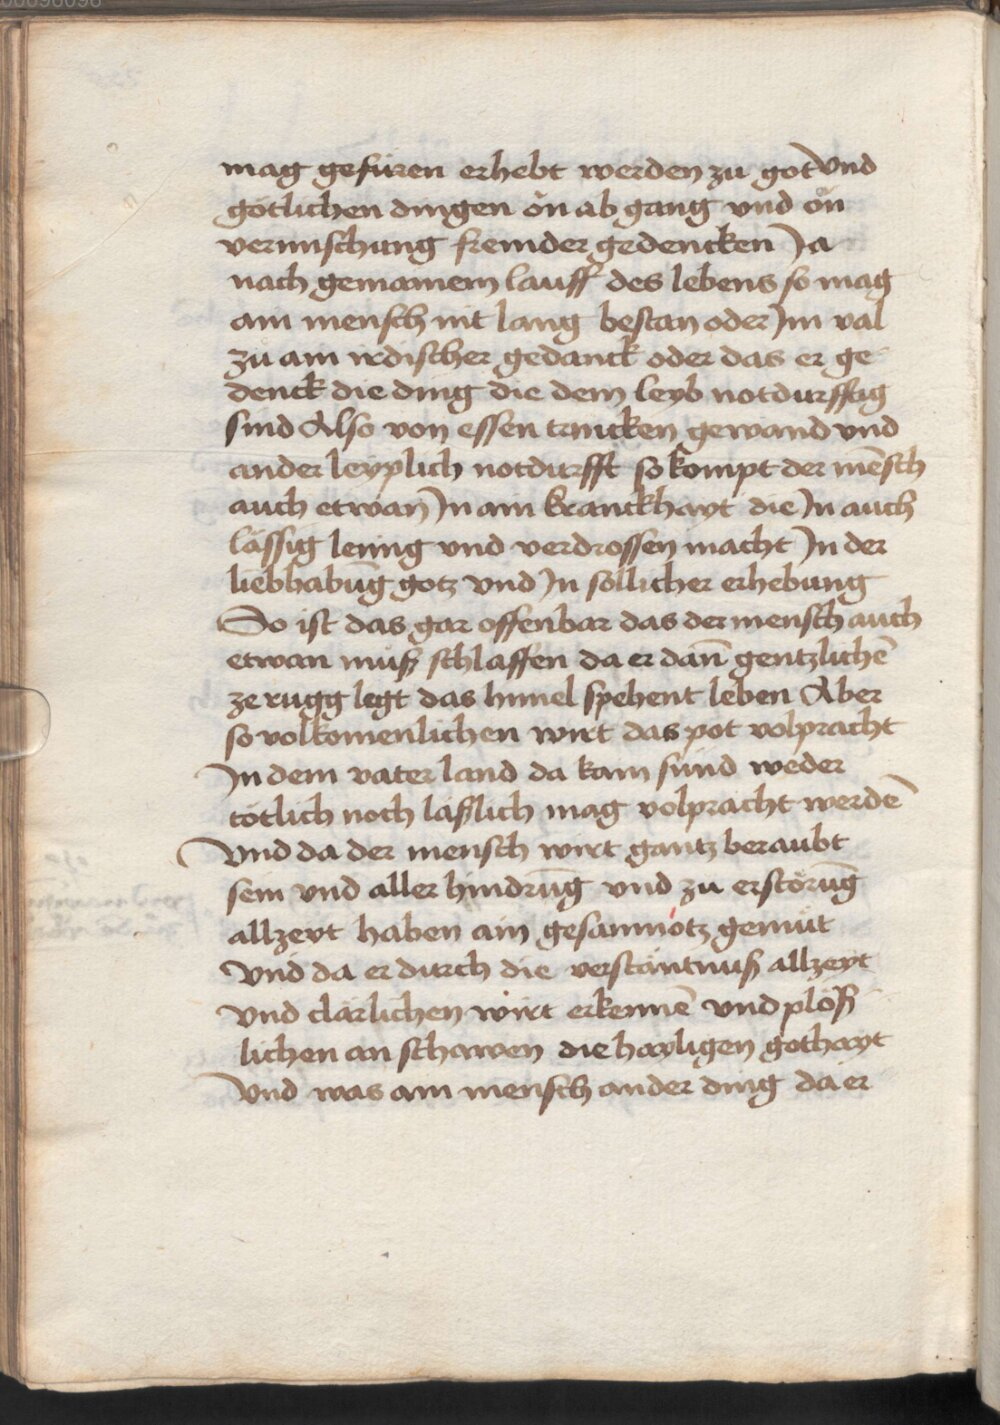 mag gefüren erhebt werden zu got Vnd
götlichen dingen ön ab gang vnd ön
vermischung fremder gedencken Ja
nach gemainem lauff des lebens so mag
ain mensch nit lang bestan oder Im val
zu ain irdischer gedanck oder das er ge
denck die ding die dem leyb notdurfftig
sind Also von essen trincken gewand vnd
ander leyplich notdurfft so kompt der mēsch
auch etwan In ain kranckhayt die In auch
lässig leinig vnd verdrossen macht In der
liebhabūg gotz vnd In sollicher erhebung
So ist das gar offenbar das der mensch auch
etwan muß schlaffen da er dañ gentzlichē
ze rugg legt das himel spehent leben Aber
so volkomenlichen wirt das pot volpracht
In dem vater land da kain sünd weder
tötlich noch läßlich mag volpracht werdē
Vnd da der mensch wirt gantz beraubt
sein vnd aller hindrūg vnd zu erstörūg
allzeyt haben ain gesamnotz gemüt
Vnd da er durch die verstäntnuß allzeyt
vnd clärlichen wirt erkennē vnd plöß
lichen an schawen die hayligen gothayt
Vnd was ain mensch ander ding da er